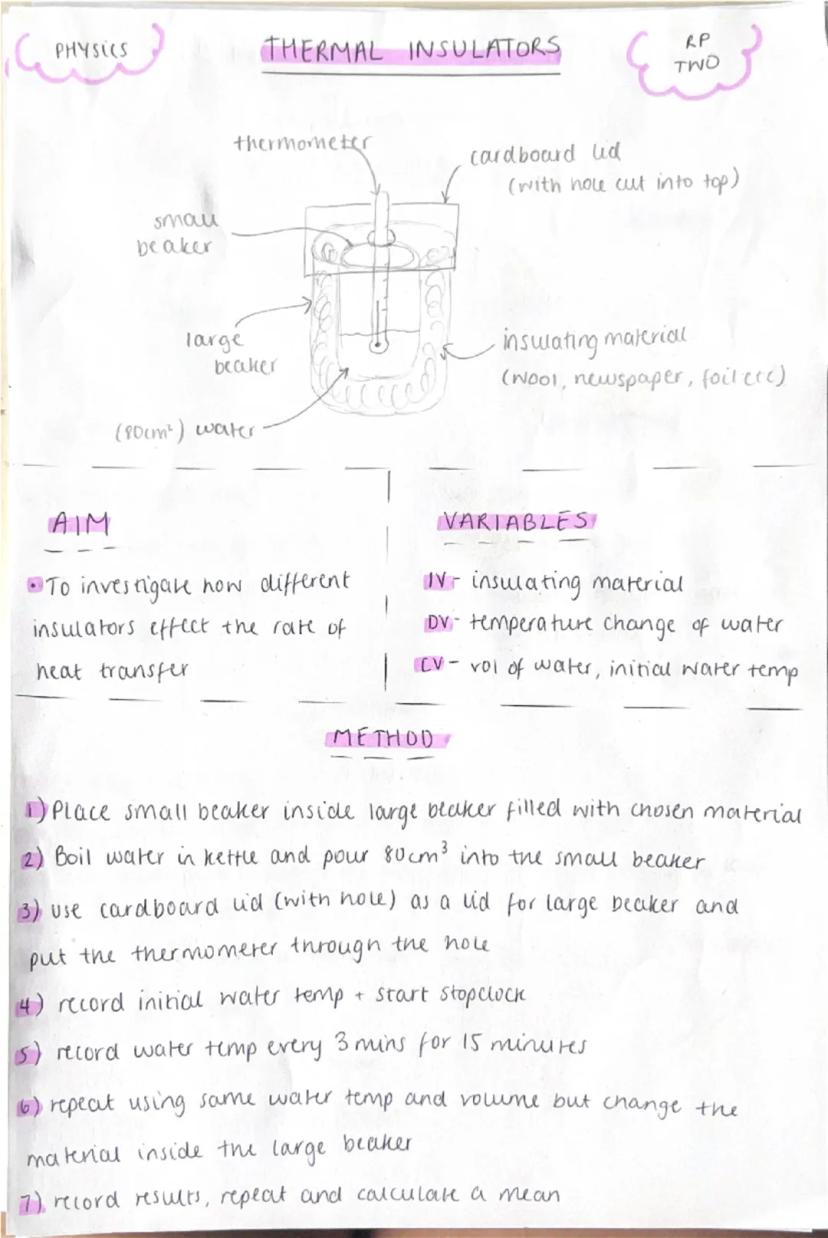 PHYSICS
THERMAL INSULATORS
RP
TWO
thermometer
cardboard lid
(with hole cut into top)
small
beaker
large
beaker
insulating material
(wool, newspaper, foil etc)
(80cm²) water
AIM
• To investigate how different
insulators effect the rate of
heat transfer
VARIABLES
IV - insulating material
DV - temperature change of water
CV - vol of water, initial water temp
METHOD
1) Place small beaker inside large beaker filled with chosen material
2) Boil water in kettle and pour 80cm³ into the small beaker
3) use cardboard lid (with hole) as a lid for large beaker and
put the thermometer through the hole
4) record initial water temp + start stopclock
5) record water temp every 3 mins for 15 minutes
6) repeat using same water temp and volume but change the
material inside the large beaker
7) record results, repeat and calculate a mean